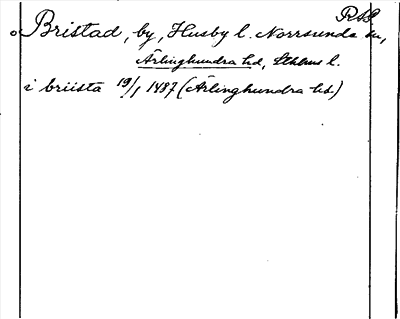 Bristad, by, Husby l. Norrsunda sn,
Ärlinghundra hd, Sthlms l.
i briista 19/1 1487 (Ärlinghundra hd)